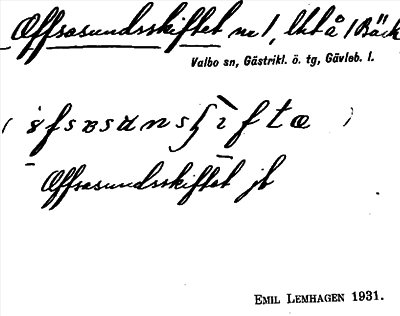 Offsasundsskiftet nr 1, lht å 1 Bäck
Valbo sn, Gästrikl. ö. tg, Gävleb. l.
Offsasundsskiftet jb
EMIL LEMHAGEN 1931.